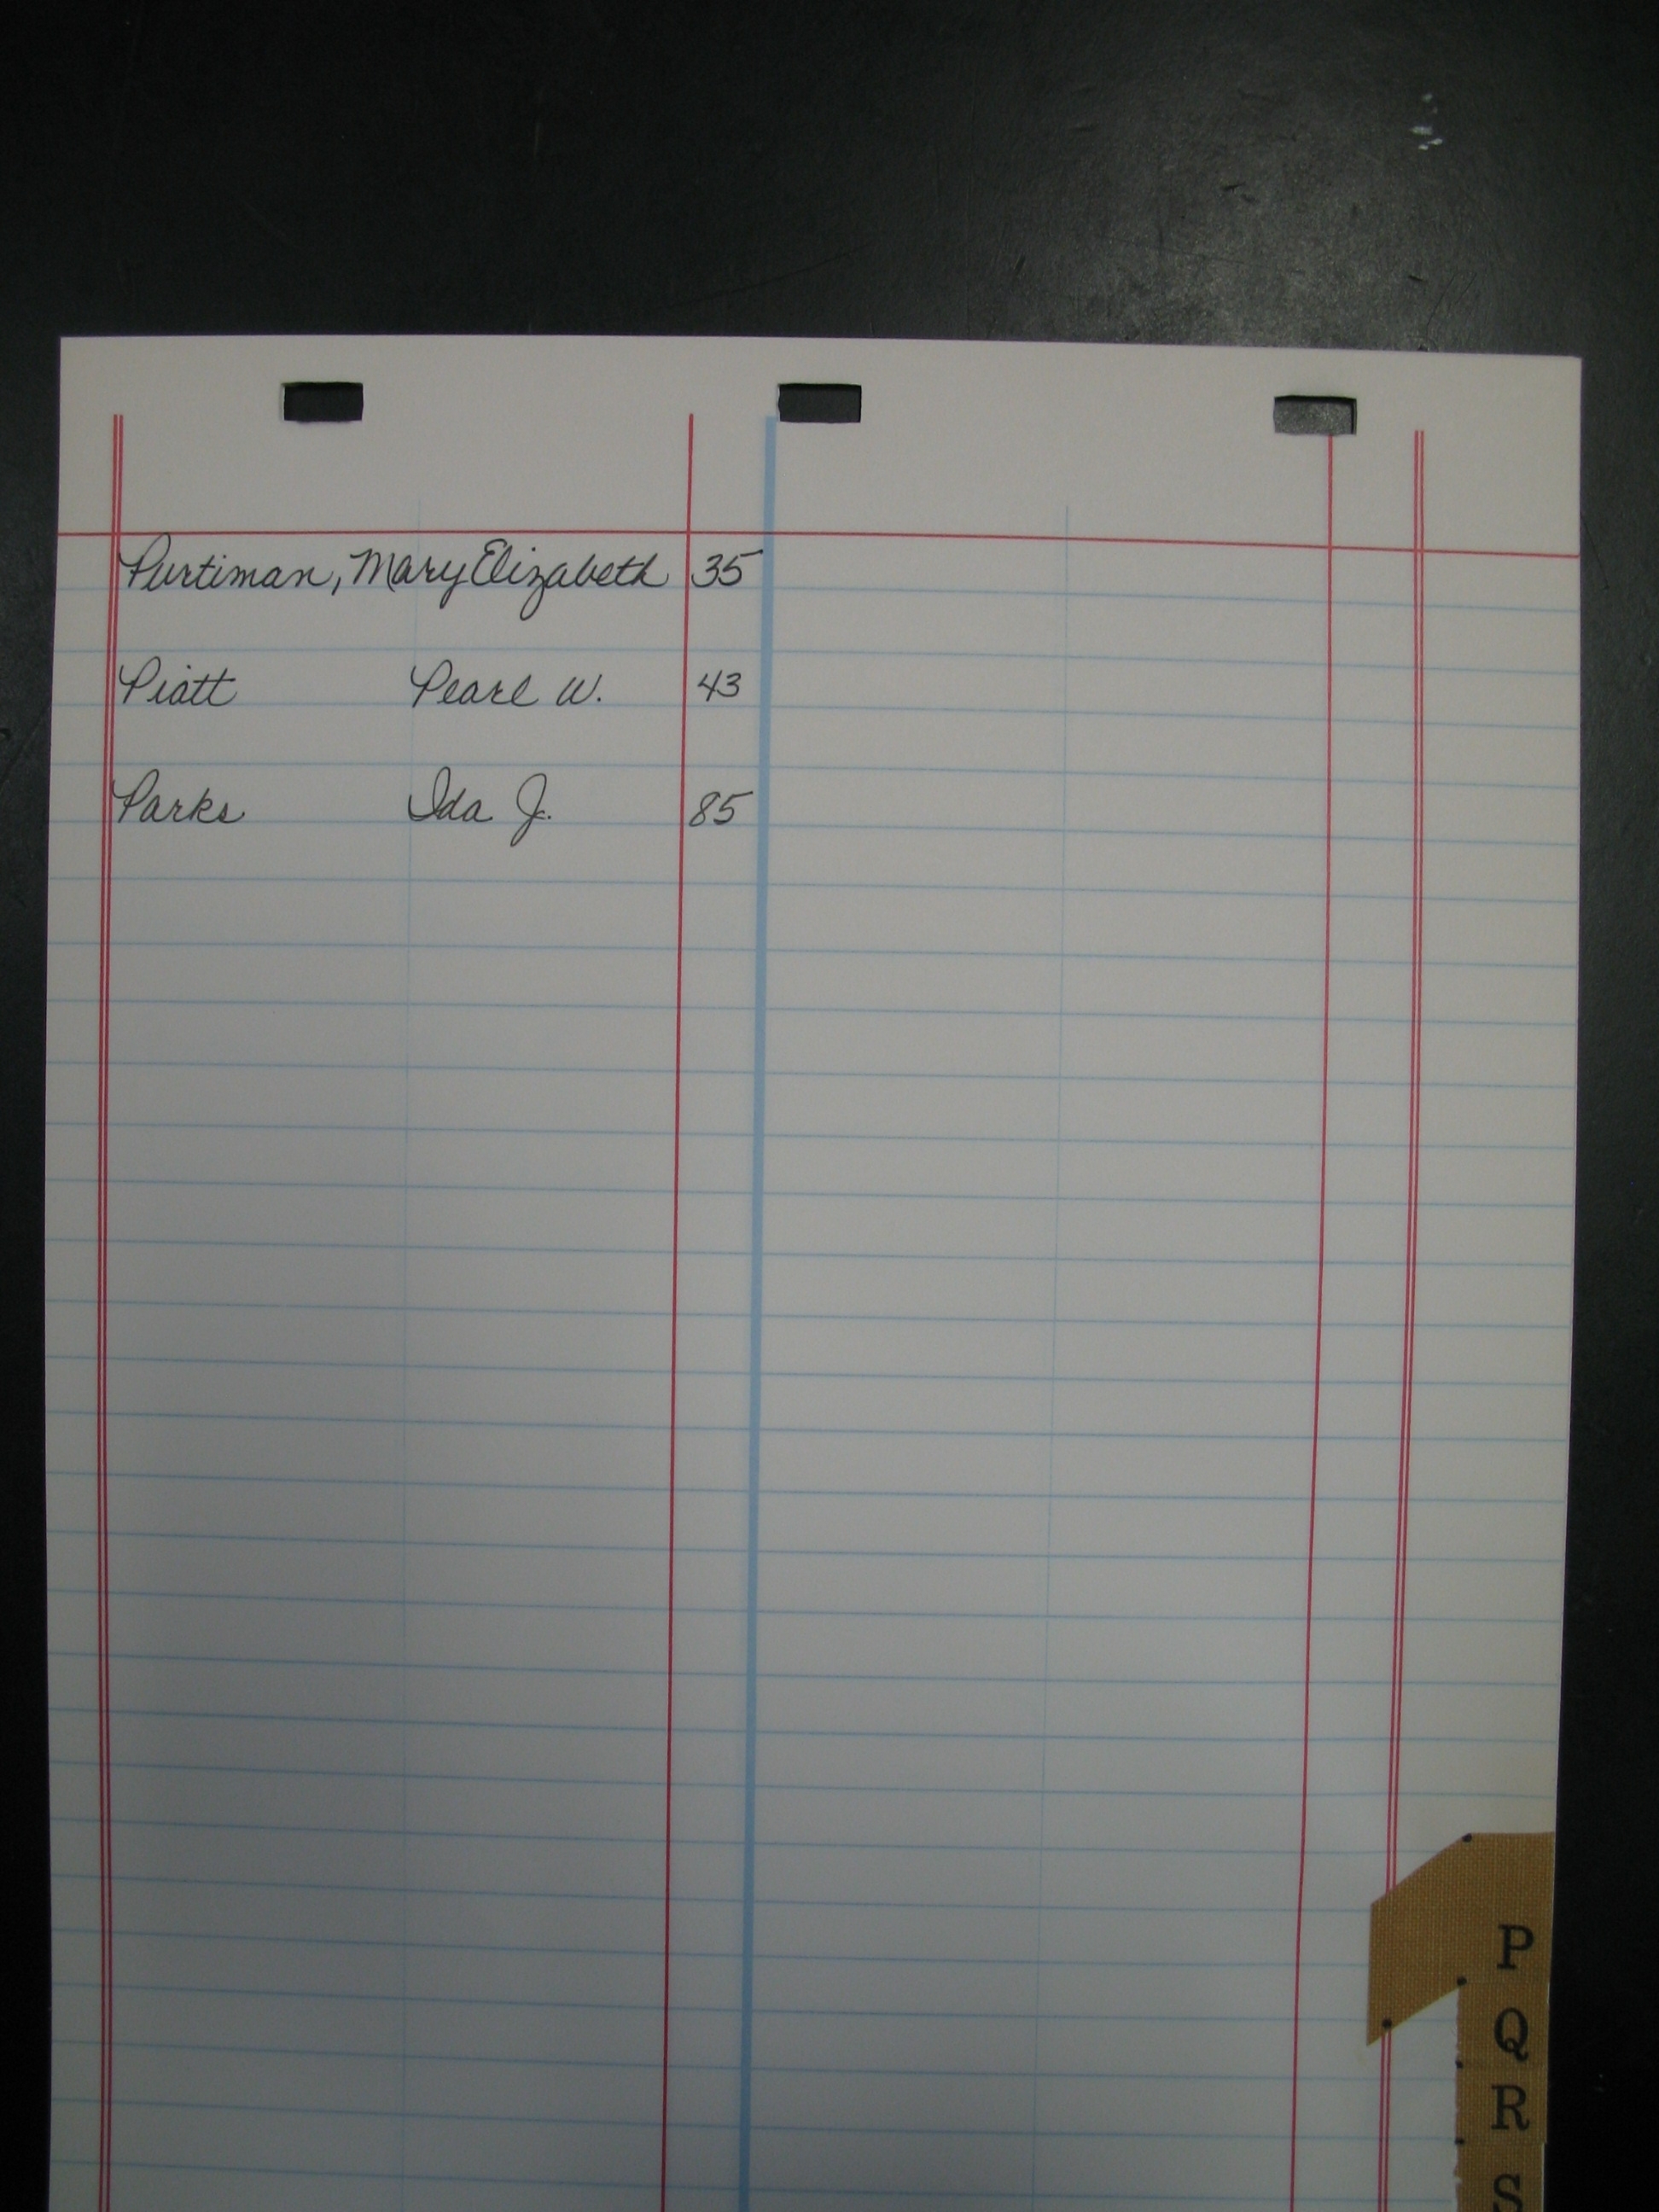 Purtiman, Mary Elizabeth 35
Piatt Pearl W. 43
Parks Ida J. 85
P
Q
R
S